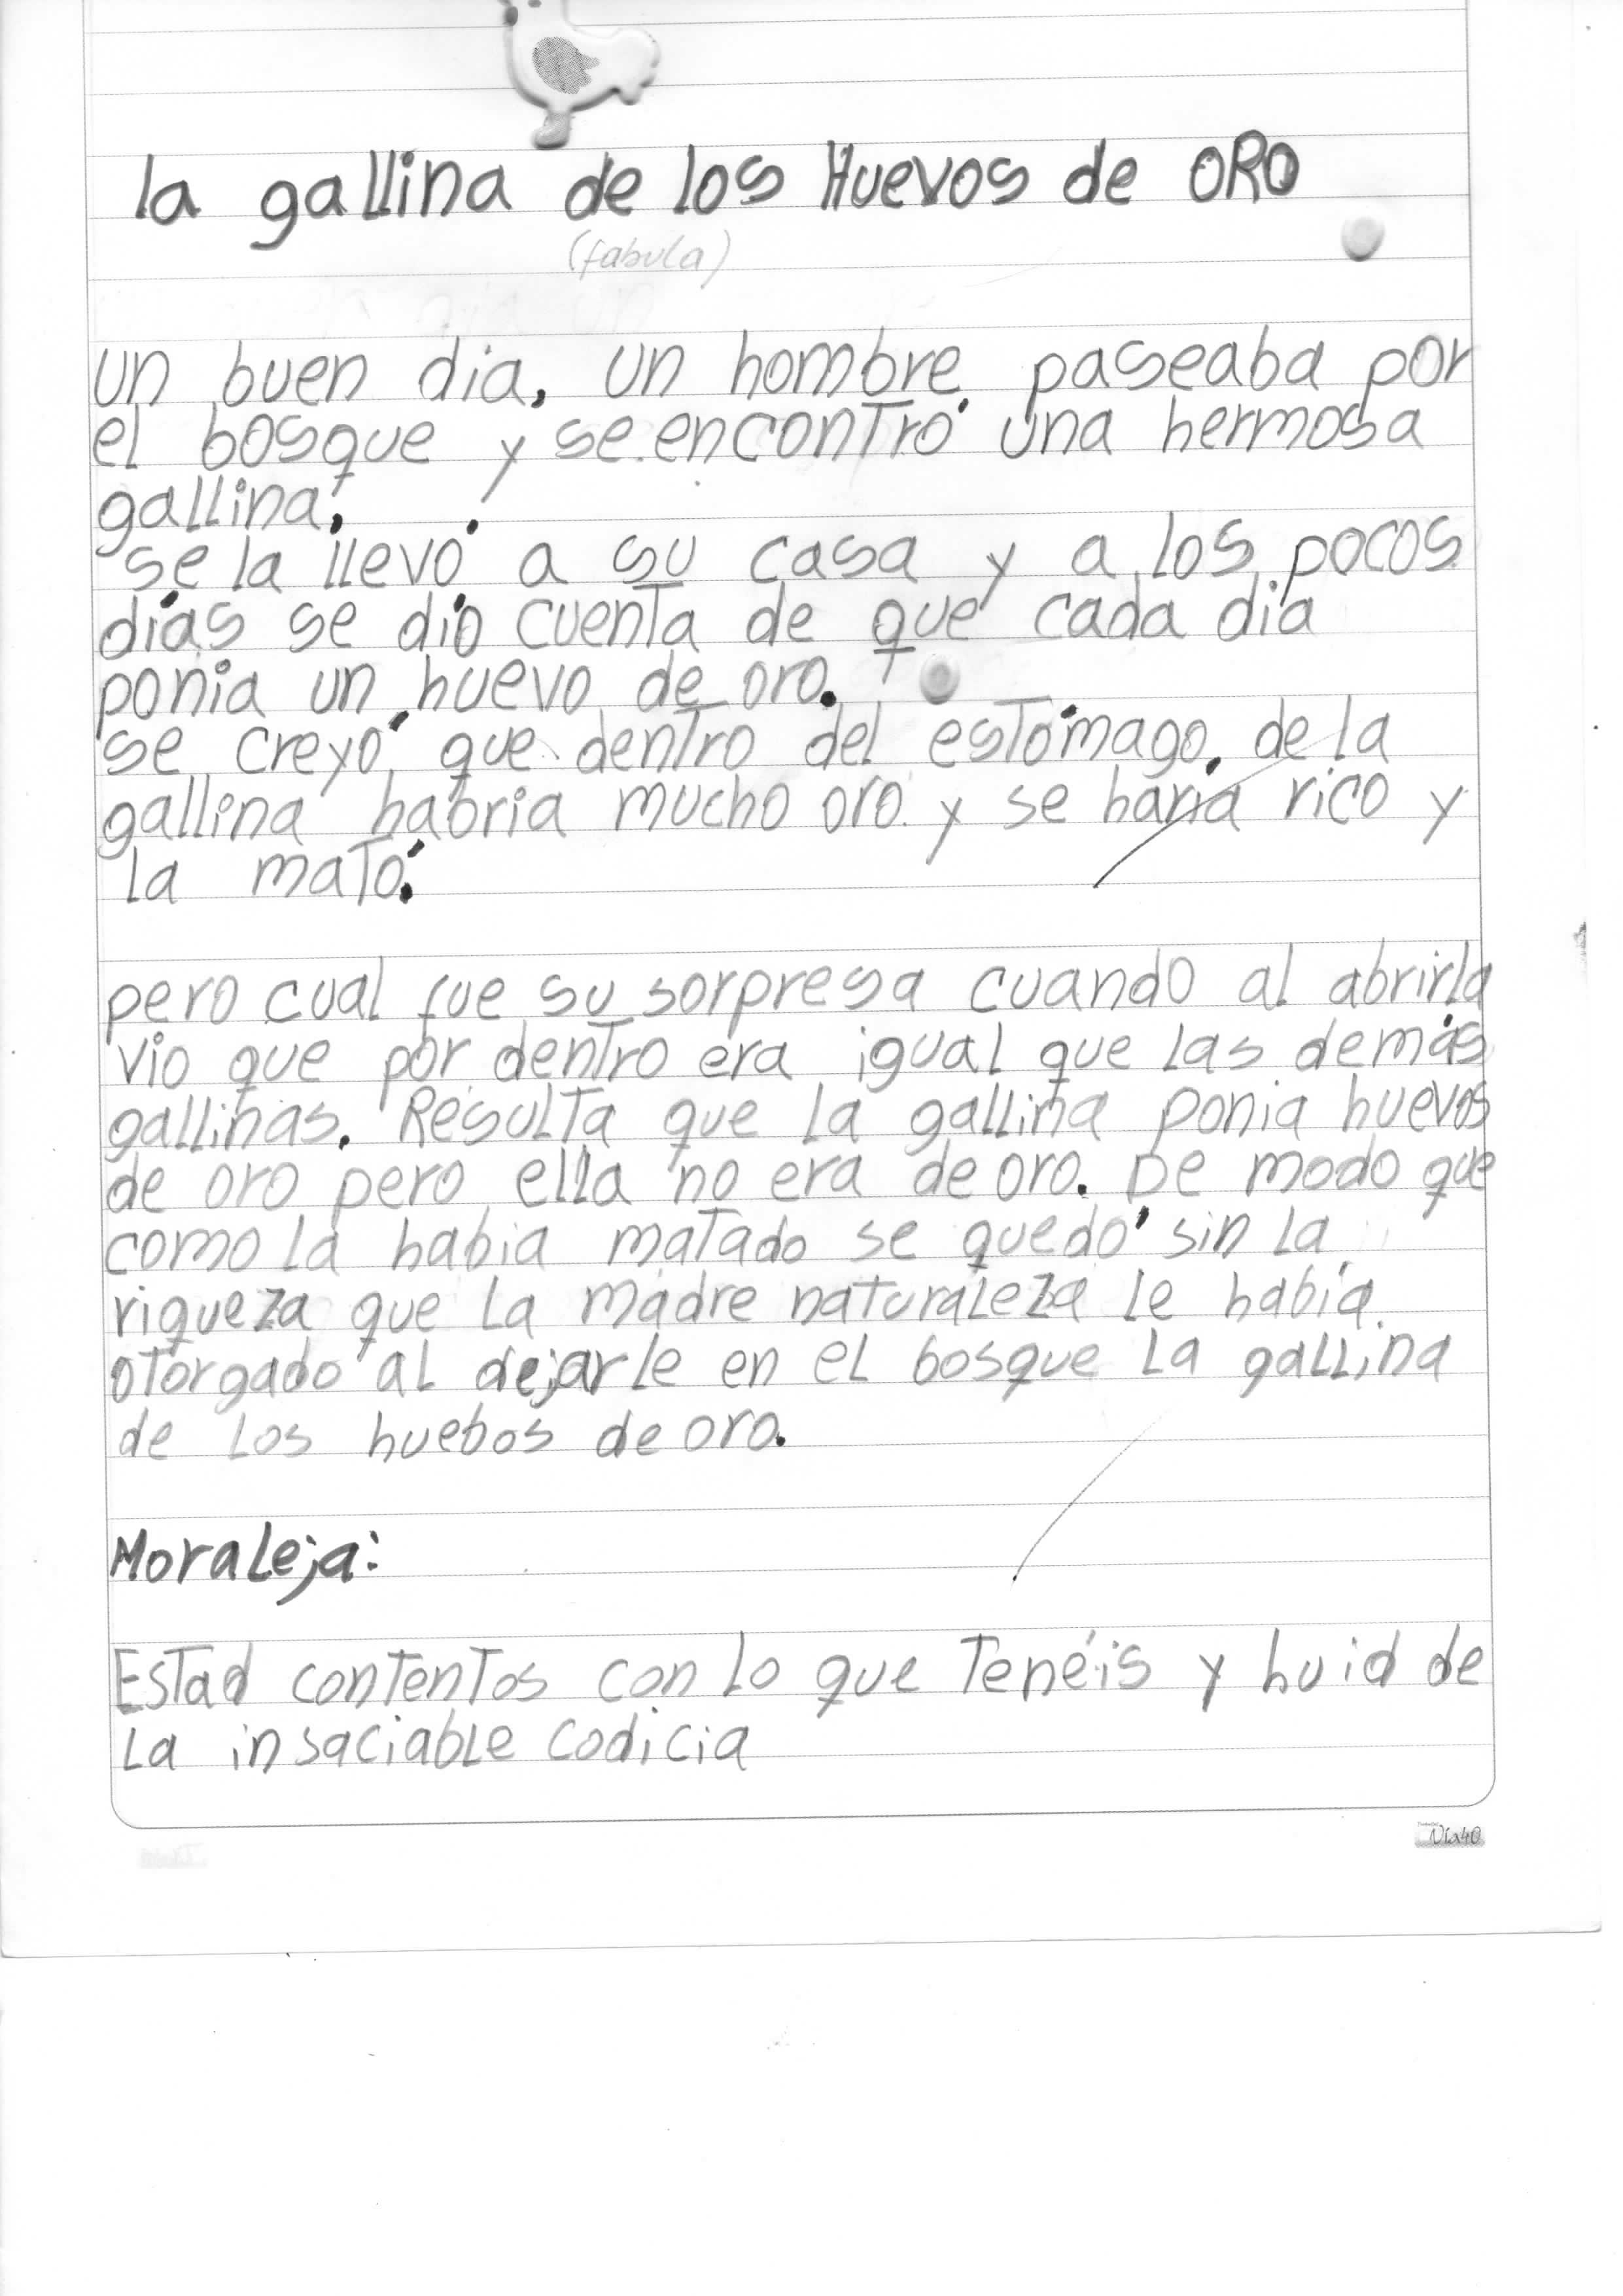 la gallina de los Huevos de ORO
(fabula)
un buen dia, un hombre paseaba por
el bosque y se encontró una hermosa
gallina.
se la llevó a su casa y a los pocos
días se dió cuenta de que cada dia
ponia un huevo de oro.
se creyó que dentro del estómago, de la
gallina habria mucho oro y se haria rico y
la mató.
pero cual fue su sorpresa cuando al abrirla
vio que por dentro era igual que las demás
gallinas. Resulta que la gallina ponia huevos
de oro pero ella no era de oro. De modo que
como la habia matado se quedó sin la
riqueza que La madre naturaleza le habia
otorgado al dejarle en el bosque La gallina
de Los huebos de oro.
Moraleja:
Estad contentos con lo que tenéis y huid de
La insaciable codicia